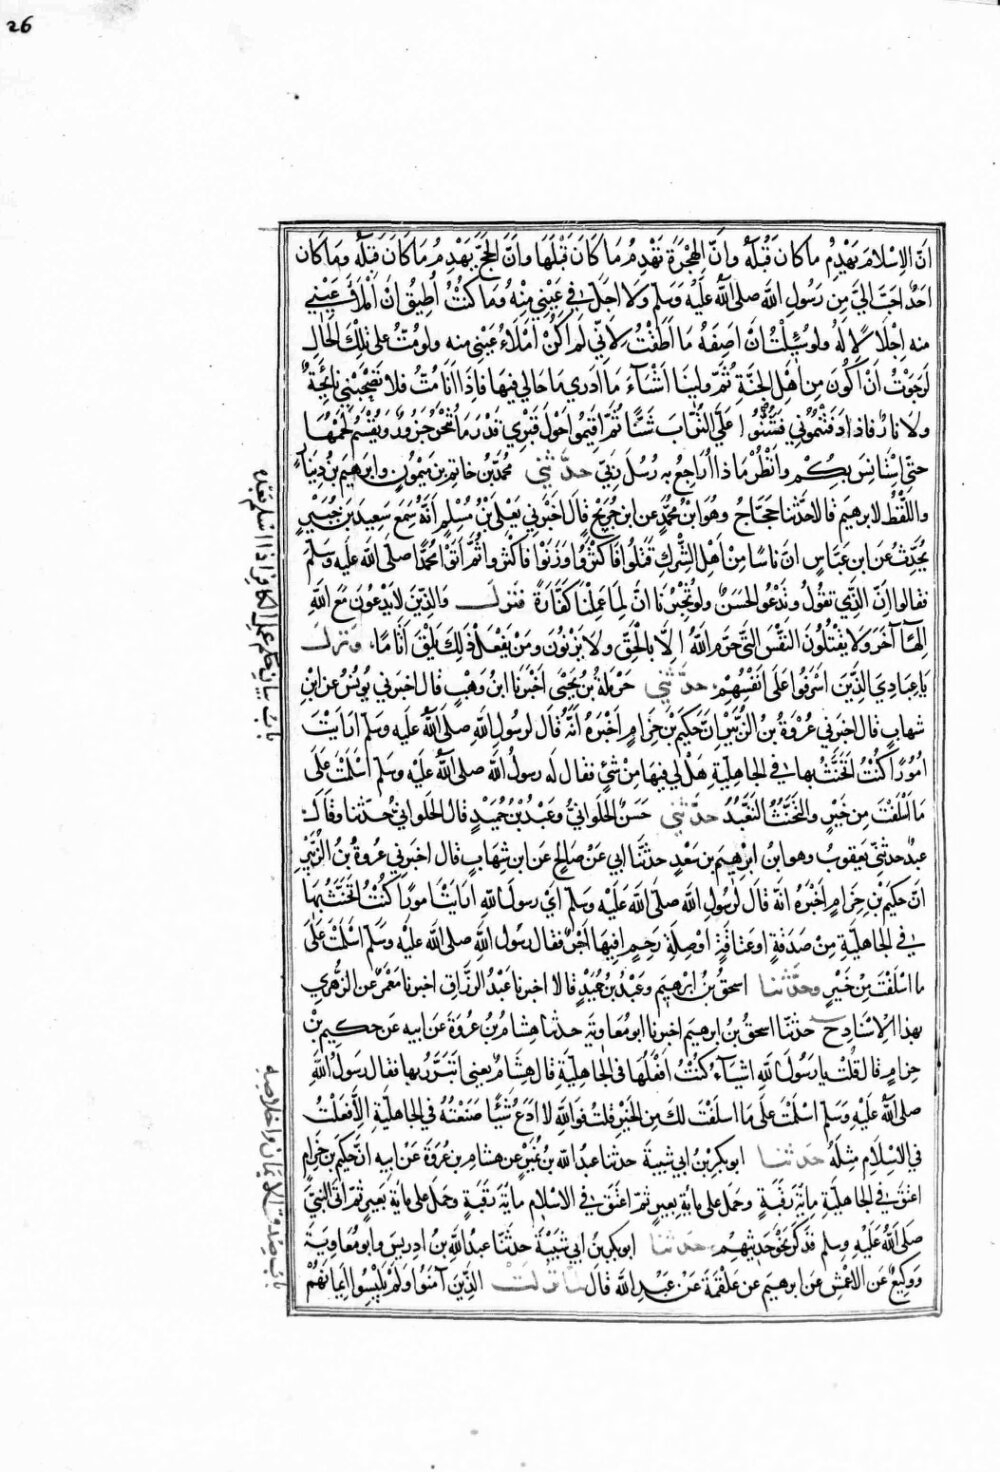 26
انّ الاِسْلامَ يَهْدِمُ ماكان قَبْلَهُ وانّ الهِجْرَةَ تَهْدِمُ مَا كَانَ قَبْلَهَا وانّ الحَجّ يَهْدِمُ مَا كَانَ قَبْلَهُ وَمَا كَان
احَدٌ احَبّ اليّ مِن رَسُولِ الله صلى اللهُ عَلَيْهِ وَسَلّم وَلَا اجَلّ في عَيْني مِنْهُ وَمَا كُنْتُ اُطِيقُ انْ اَمْلَأ عَيْنِي
منه اِجْلَالًا لَهُ ولو سُئِلْتُ انْ اَصِفَهُ مَا اَطَقْتُ لِاَنّي لَم اَكُنْ اَمْلَاءُ عَيْنِي منه ولو مُتُّ على تِلْكَ الحَالِ
لَرَجَوْتُ اَنْ اَكُونَ مِن اَهْلِ الجَنّةِ ثُمّ ولينَا اَشْيَآءَ مَا اَدري مَا حَالي فيهَا فاذَا اَنَا مُتُّ فلا تَصْحَبْنِي نَائِحَةٌ
ولَا نارٌ فاذا دَفَنْتُمُوني فَشُنُّوا عَلَيّ التّرابَ شَنًّا ثمّ اقِيمُوا حَوْلَ قَبْرِي قَدْرَ مَا تُنْحَرُ جَزُورٌ وَيُقْسَمُ لَحْمُهَا
حتى اسْتَانِسَ بِكُمْ وانْظُرَ مَاذا اُرَاجِعُ به رُسُلَ رَبّي حَدّثَني محمّد بْنُ حَاتِم بن مَيْمُونٍ وابرهيم بنُ دِينَارٍ
واللّفْظُ لابرهيم قالا حَدّثَنا حَجّاج وهُوَ ابنُ محمّدٍ عن ابن جُرَيْجٍ قالَ اخْبَرَني يَعْلَى بْنُ مُسْلِمٍ اَنّهُ سَمِعَ سَعِيدَ بنَ جُبَيْرٍ
يُحَدِّثُ عَن ابن عَبّاسٍ انّ نَاسًا مِنْ اَهْلِ الشِّرْكِ قَتَلُوا فَاَكْثَرُوا وَزَنَوْا فَاَكْثَروا ثُمّ اَتَوْا مُحَمّدًا صلى الله عَلَيه وَسَلّم
فقالوا انّ الّذِي تقُولُ وتَدْعُو لَحَسَنٌ ولو تُخْبِرُنَا انّ لِمَا عَمِلْنَا كَفّارَةً فنَزلَ والّذِينَ لايَدْعُونَ مَعَ اللهِ
اِلَهًا آخَرَ وَلَا يَقْتُلُونَ النّفْسَ الّتي حَرّمَ اللهُ اِلّا بِالْحَقِّ ولا يَزْنُونَ وَمَنْ يَفْعَلْ ذٰلِكَ يَلْقَ اَثَامًا، ونزلَ
يَا عِبَادِيَ الّذِينَ اسْرَفُوا عَلَى اَنْفُسِهِمْ، حَدّثَني حَرْمَلَةُ بنُ يَحْيَى اخْبَرَنا ابنُ وَهْبٍ قال اخبرني يونُسُ عن ابْنِ
شهابٍ قال اخبرني عُرْوَةُ بْنُ الزّبَيْرِ انّ حَكيمَ بْنَ حِزَامٍ اَخْبَرَهُ انّهُ قَالَ لرسُولِ اللهِ صلى اللهُ عليه وسلّم اَرَاَيْتَ
اُمُورًا كُنْتُ اَتَحَنّثُ بها في الجاهِلِيّةِ هَلْ لي فِيهَا مِنْ شَيْءٍ فقال له رسولُ الله صلى الله عليه وسلّم اسْلَمْتَ عَلَى
مَا اَسْلَفْتَ مِن خَيْرٍ والتّحَنُّثُ التّعَبُّدُ حَدّثَني حَسَنٌ الحَلْوانيّ وعَبْدُ بْنُ حُمَيْدٍ قال الحَلْواني حَدّثنا وقَالَ
عبدٌ حدثنيْ يَعقوبُ وهو ابنُ ابرٰهيم بن سَعْدٍ حدّثَنَا ابي عَنْ صَالحٍ عَن ابن شِهَابٍ قال اخبرني عروةُ بنُ الزّبَيْرِ
انّ حكيمَ بْنَ حِزَامٍ اخْبَرَهُ انّهُ قال لرَسُولِ اللهِ صلى الله عَلَيْهِ وَسَلّم اَيْ رسولَ اللهِ اَرَاَيْتَ اُمورًا كُنْتُ اَتَحَنّثُ بِهَا
في الجاهِليّةِ مِنْ صَدَقَةٍ او عَتَاقَةٍ اوْ صِلَةِ رَحِمٍ افِيهَا اَجْرٌ فقال رسُولُ اللهِ صلى الله عليه وسَلّم اسْلَمْتَ عَلَى
ما اسْلَفْتَ مِن خَيْرٍ وحَدّثَنا اسحقُ بنُ ابرٰهيم وعَبْدُ بنُ حُمَيْدٍ قالا اخبرنا عَبْدُ الرزّاق اخبرنا مَعْمَرٌ عن الزُّهْرِي
بهذا الاِسْنَادِ ح حدّثنا اسحقُ بنُ ابرهيم اخبرنا ابو مُعَاويَة حدثنا هِشَامُ بنُ عُرْوَةَ عَن ابيه عن حكيم بْنِ
حِزامٍ قال قُلْتُ يا رَسُولَ اللهِ اشْيَآءَ كُنْتُ افْعَلُهَا في الجَاهِليّةِ قال هِشَامٌ يعني اَتَبَرّرُ بها فقال رَسولُ اللهِ
صلى اللهُ عَلَيْهِ وَسَلّم اسْلَمْتَ عَلَى مَا اسْلَفْتَ لَكَ مِن الخَيْرِ قلتُ فوَاللهِ لا اَدَعُ شَيْئًا صَنَعْتُهُ في الجَاهليّةِ الّا فَعَلْتُ
في الاِسْلَامِ مِثْلَهُ حَدّثَنا ابو بكرِ بْنُ ابي شيبَةَ حدثنا عبدُ الله بنُ نُمَيْرٍ عن هشام بن عُرْوَةَ عَنْ ابيه انّ حَكيمَ بن حِزَامٍ
اعتقَ في الجاهليّةِ مِايَةَ رَقَبَةٍ وحَمَل على مايَةِ بَعِيرٍ ثمّ اعْتَقَ في الاسْلام مِايَةَ رَقَبَةٍ وحَمَل على مايَة بَعيرٍ ثمّ اَتَى النبيَّ
صَلَى اللهُ عَلَيْهِ وسلم فَذَكَرَ نَحْوَ حَدِيثِهِمْ، حَدّثَنا ابو بكرِ بنُ ابي شَيْبَةَ حدّثنَا عبدُ اللهِ بنُ ادريسَ وابو مُعَاويَةَ
وَوَكيعٌ عن الاعْمَشِ عن ابرهيمَ عن عَلْقَمَةَ عَنْ عَبْدِ الله قالَ لما نزلَتْ الّذِينَ آمَنُوا ولَمْ يَلْبِسُوا اِيمَانَهُمْ
بابُ بيان حكم عمل الكافر اذا اسلم بعده
باب صدق الايمان واخلاصه